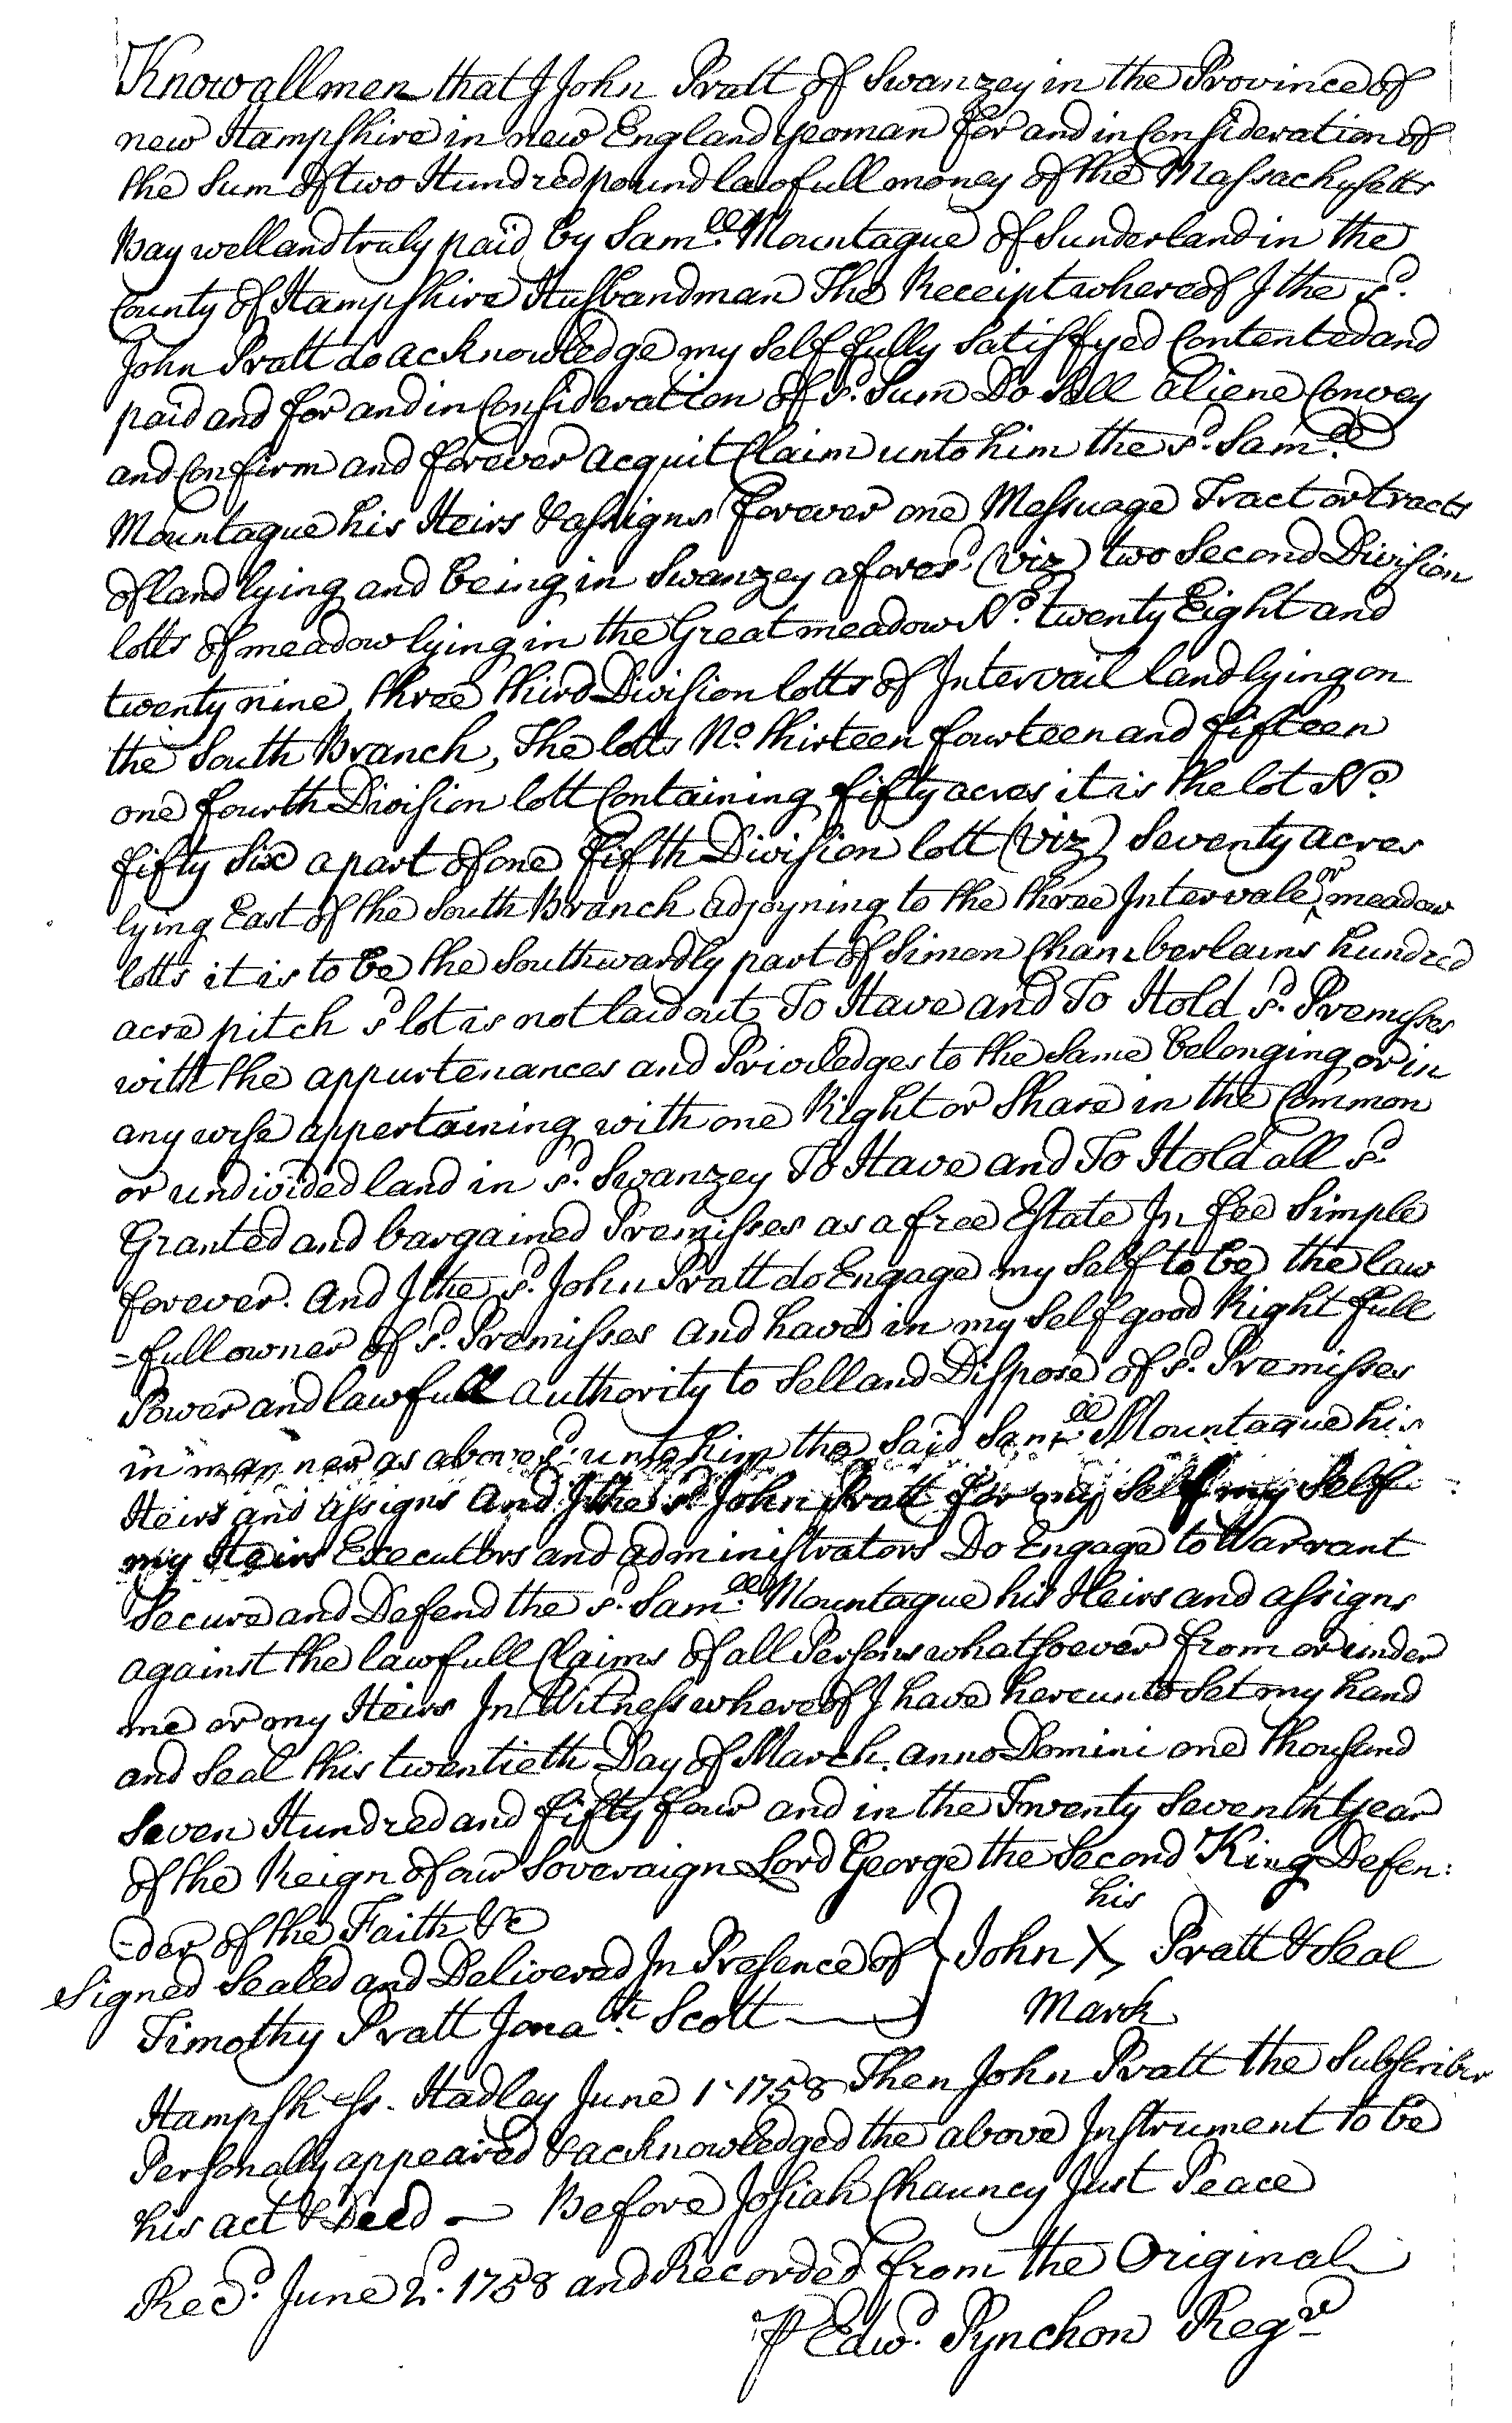 Know all men that I John Pratt of Swanzey in the Province of
new Hampshire in new England yeoman for and in Consideration of
the Sum of two Hundred pound lawfull money of the Massachysetts
Bay well and truly paid by Sam.ll Mountague of Sunderland in the
County of Hampshire Husbandman The Receipt whereof I the s.d
John Pratt do acknowledge my self fully satisfyed Contented and
paid and for and in Consideration of s.d Sum Do Sell aliene Convey
and Confirm and forever acquit Claim unto him the s.d Sam.ll
Mountague his Heirs & assigns forever one Messuage Tract or tracts
of land lying and being in Swanzey afores.d (viz) two Second Division
lotts of meadow lying in the Great meadow N.o twenty Eight and
twenty nine, three third Division lotts of Intervail land lying on
the South Branch, The lotts No. thirteen fourteen and fifteen
one fourth Division lott Containing fifty acres it is the lot N.o
fifty Six a part of one fifth Division lott (viz) Seventy acres
lying East of the South Branch adjoyning to the three Intervale or meadow
lotts it is to be the Southwardly part of Simon Chamberlains hundred
acre pitch s.d lot is not laid out, To Have and To Hold s.d Premisses
with the appurtenances and Priviledges to the Same belonging or in
any wise appertaining with one Right or Share in the Common
or undivided land in s.d Swanzey To Have and To Hold all s.d
Granted and bargained Premisses as a free Estate In fee Simple
forever. And I the s.d John Pratt do Engage my Self to be the law
=full owner of s.d Premisses and have in my Self good Right full
Power and lawfull authority to Sell and Dispose of s.d Premisses
in manner as aboves.d unto him the said Sam.ll Mountague his
Heirs and assigns And I the s.d John Pratt for my Self my Self
my Heirs Executors and administrators Do Engage to Warrant
Secure and Defend the s.d Sam.ll Mountague his Heirs and assigns
against the lawfull Claims of all Persons whatsoever from or under
me or my Heirs In Witness whereof I have hereunto Set my hand
and Seal this twentieth Day of March anno Domini one thousand
Seven Hundred and fifty four and in the Twenty Seventh Year
of the Reign of our Soveraign Lord George the Second King Defen:
-der of the Faith &c
his
Signed Sealed and Delivered In Presence of } John X Pratt & Seal
Timothy Pratt Jona.th Scott
Mark
Hampsh ss. Hadley June 1. 1758 Then John Pratt the Subscriber
Personally appeared & acknowledged the above Instrument to be
his act & Deed — Before Josiah Chauncy Just Peace
Rec.d June 2. 1758 and Recorded from the Original
P Edw.d Pynchon Reg.r